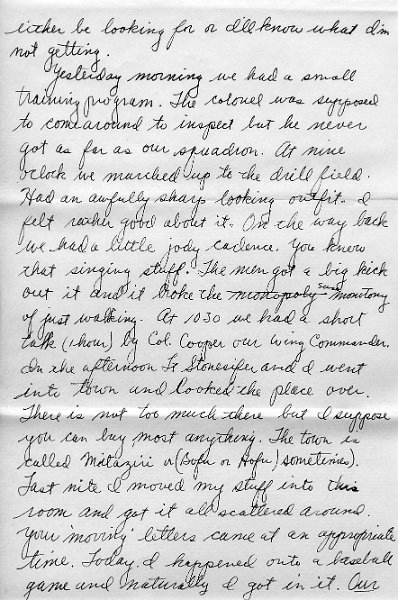 either be looking for or I'll know what I'm
not getting.
Yesterday morning we had a small
training program. The colonel was supposed
to come around to inspect but he never
got as far as our squadron. At nine
oclock we marched up to the drill field.
Had an awfully sharp looking outfit. I
felt rather good about it. On the way back
we had a little jody cadence. You know
that singing stuff. The men got a big kick
out it and it broke the monopoly monotony
of just walking. At 1030 we had a short
talk (1 hour) by Col. Cooper our Wing Commander.
In the afternoon Lt Stonesifer and I went
into town and looked the place over.
There is not too much there but I suppose
you can buy most anything. The town is
called Mitaziri or (Bofu or Hofu) sometimes).
Last nite I moved my stuff into this
room and got it all scattered around.
Your 'moving' letters came at an appropriate
time. Today I happened onto a baseball
game and naturally I got in it. Our